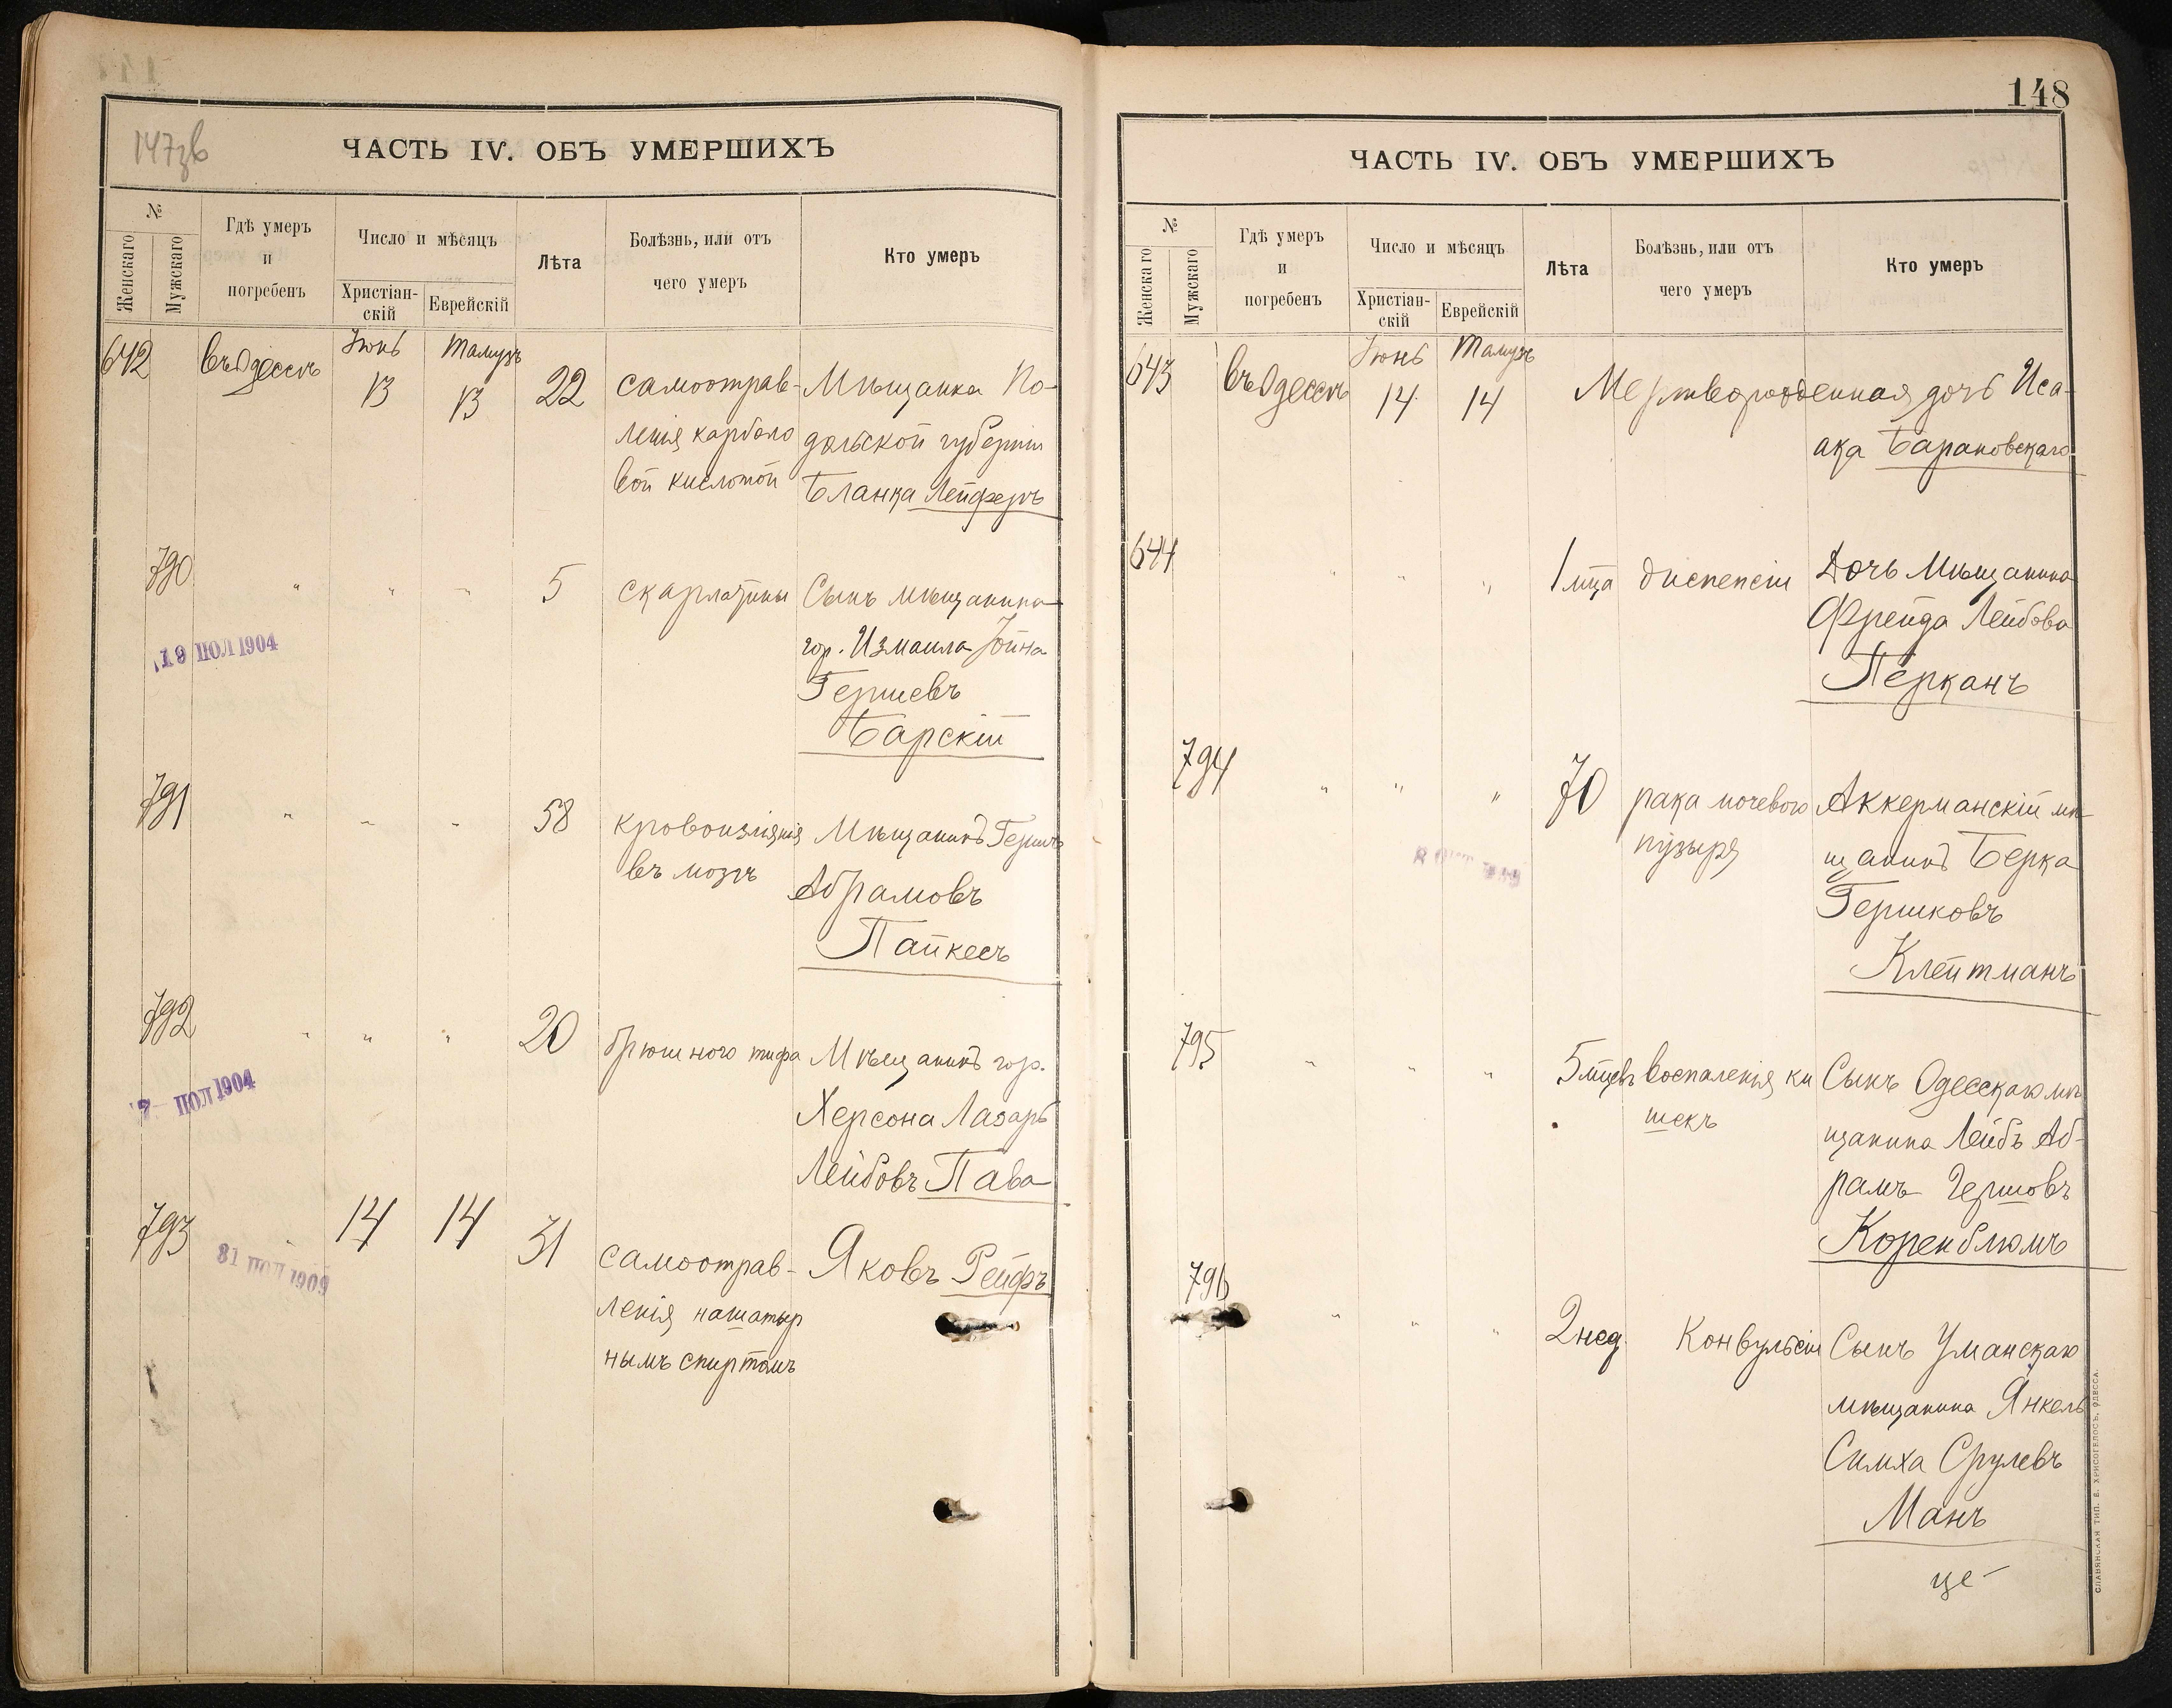 147зв
ЧАСТЬ IV. ОБЪ УМЕРШИХЪ
№
Женскаго
Мужскаго
Гдѣ умеръ
и
погребенъ
Число и мѣсяцъ
Христіан-
скій
Еврейскій
Лѣта
Болѣзнь, или отъ
чего умеръ
Кто умеръ
642 въ Одессѣ Іюнь 13 Тамузъ 13 22 самоотрав- Мѣщанка По-
ленія карболо дольской губерніи
вой кислотой Бланка Лейферъ
790 " " " 5 скарлатины Сынъ мѣщанина
гор. Измаила Іойна
Гершевъ
Барскій
19 ПОЛ 1904
791 " " " 58 кровоизліянія Мѣщанинъ Гершъ
въ мозгъ Абрамовъ
Папкесъ
792 " " " 20 брюшного тифа Мѣщанинъ гор.
Херсона Лазарь
Лейбовъ Пава
ПОЛ 1904
793 " 14 14 31 самоотрав- Яковъ Рейфъ
ленія нашатыр
нымъ спиртомъ
ПОЛ 1909
148
ЧАСТЬ IV. ОБЪ УМЕРШИХЪ
№
Женскаго
Мужскаго
Гдѣ умеръ
и
погребенъ
Число и мѣсяцъ
Христіан-
скій
Еврейскій
Лѣта
Болѣзнь, или отъ
чего умеръ
Кто умеръ
643 въ Одессѣ Іюнь 14 Тамузъ 14 Мертворожденная дочь Иса-
ака Барановскаго
644 " " " 1 мца диспепсіи Дочь Мѣщанина
Фрейда Лейбова
Перканъ
794 " " " 70 рака мочевого Аккерманскій мѣ-
пузыря щанинъ Берка
Гершковъ
Клейтманъ
795 " " " 5 мцевъ воспаленія ки Сынъ Одесскаго мѣ
шекъ щанина Лейбъ Аб-
рамъ Гершовъ
Коренблюмъ
796 " " " 2 нед. Конвульсіи Сынъ Уманскаго
мѣщанина Янкель
Симха Срулевъ
Манъ
це-
СЛАВЯНСКАЯ ТИП. Е. ХРИСОГЕЛОСЪ, ОДЕССА.